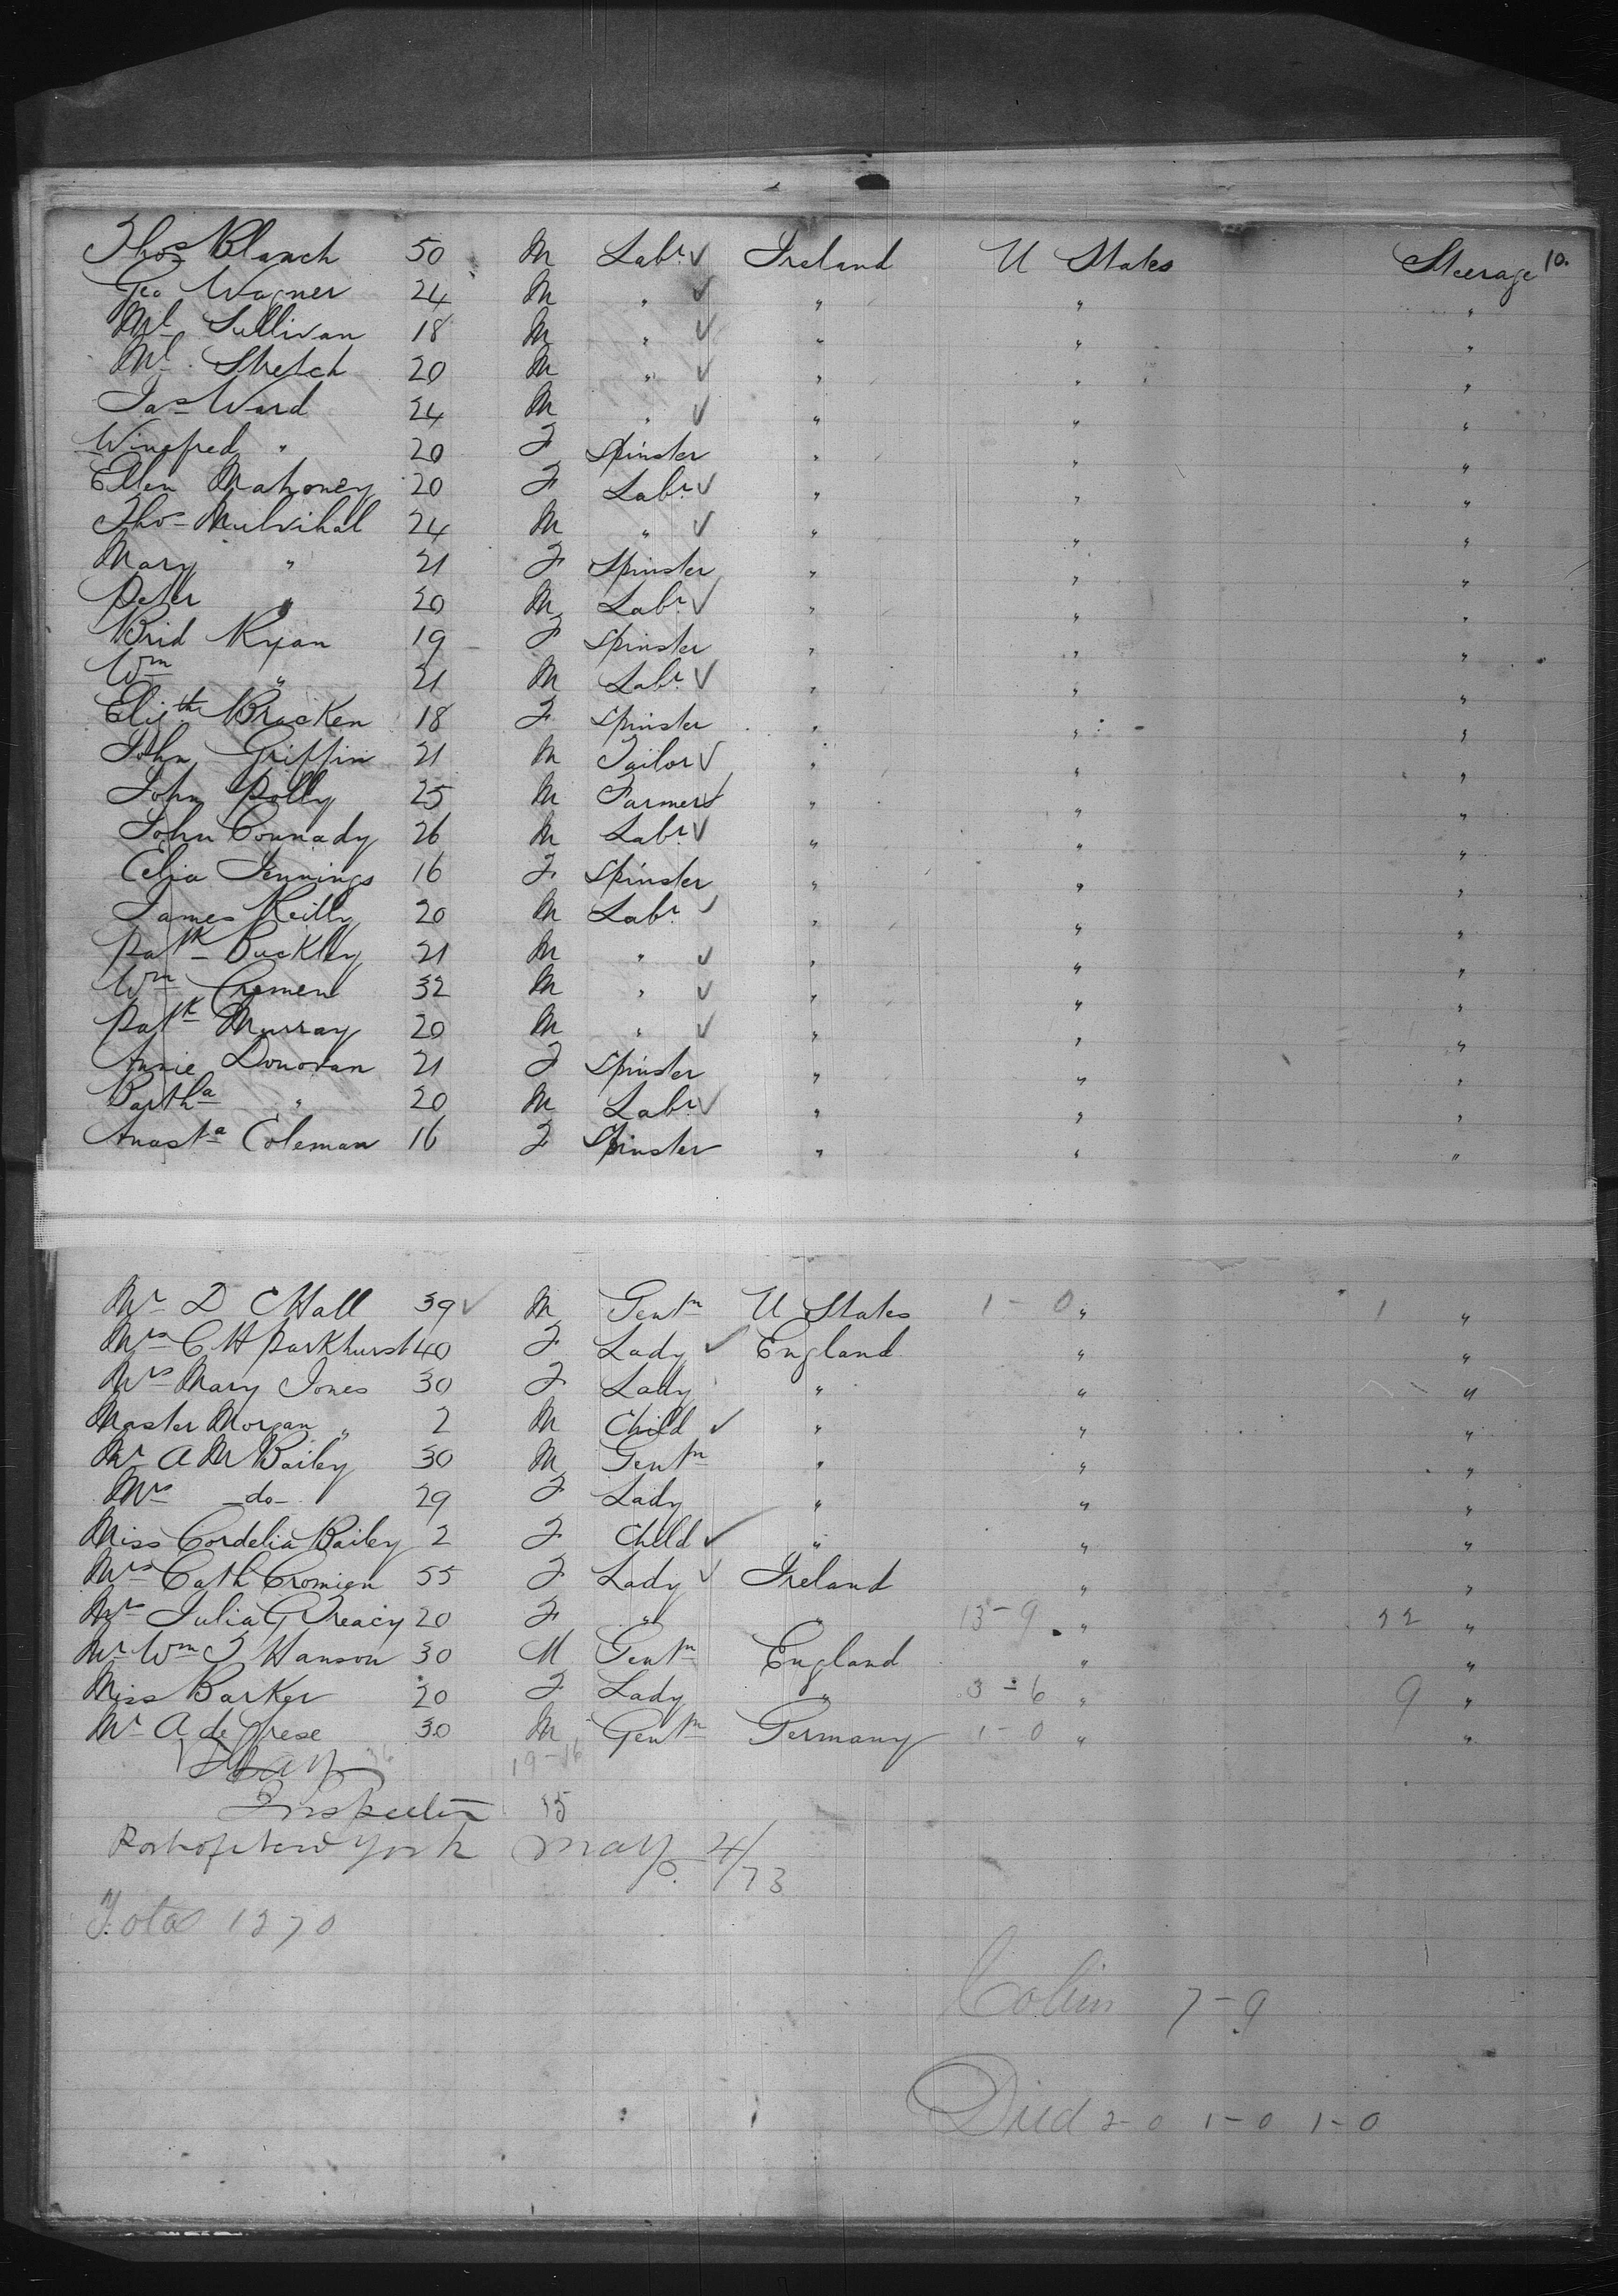 Thos Blanch 50 M Labr ✓ Ireland U States Steerage 10.
Geo Wagner 24 M " ✓ " " "
Ml Sullivan 18 M " ✓ " " "
Ml Stretch 20 M " ✓ " " "
Jas Ward 24 M " ✓ " " "
Winefred " 20 F Spinster " " "
Ellen Mahoney 20 F Labr ✓ " " "
Thos Mulvihal 24 M " ✓ " " "
Mary " 21 F Spinster " " "
Peter " 20 M Labr ✓ " " "
Brid Ryan 19 F Spinster " " "
Wm " 21 M Labr ✓ " " "
Elizth Bracken 18 F Spinster " " "
John Griffin 21 M Tailor ✓ " " "
John Polly 25 M Farmer ✓ " " "
John Connady 26 M Labr ✓ " " "
Celia Jennings 16 F Spinster " " "
James Reilly 20 M Labr ✓ " " "
Patk Buckley 21 M " ✓ " " "
Wm Cremen 32 M " ✓ " " "
Patk Murray 20 M " ✓ " " "
Annie Donovan 21 F Spinster " " "
Bartha " 20 M Labr ✓ " " "
Anasta Coleman 16 F Spinster " " "
Mr D C Hall 39 ✓ M Gentn U States 1-0 " 1 "
Mrs C H Parkhurst 40 F Lady ✓ England " "
Mrs Mary Jones 30 F Lady " " "
Master Morgan " 2 M Child ✓ " " "
Mr A M Bailey 30 M Gentn " " "
Mrs -do- 29 F Lady " " "
Miss Cordelia Bailey 2 F Child ✓ " " "
Mrs Cath Cromien 55 F Lady ✓ Ireland " "
Mrs Julia G Treacy 20 F " " 13-9 " 22 "
Mr Wm J Hanson 30 M Gentn England " "
Miss Barker 20 F Lady " 3-6 " 9 "
Mr A de 30 M Gentn Germany 1-0 " "
19-16
Inspector 35
Port of New York May 4/73
Total 1270
Cabin 7-9
Died 2-0 1-0 1-0